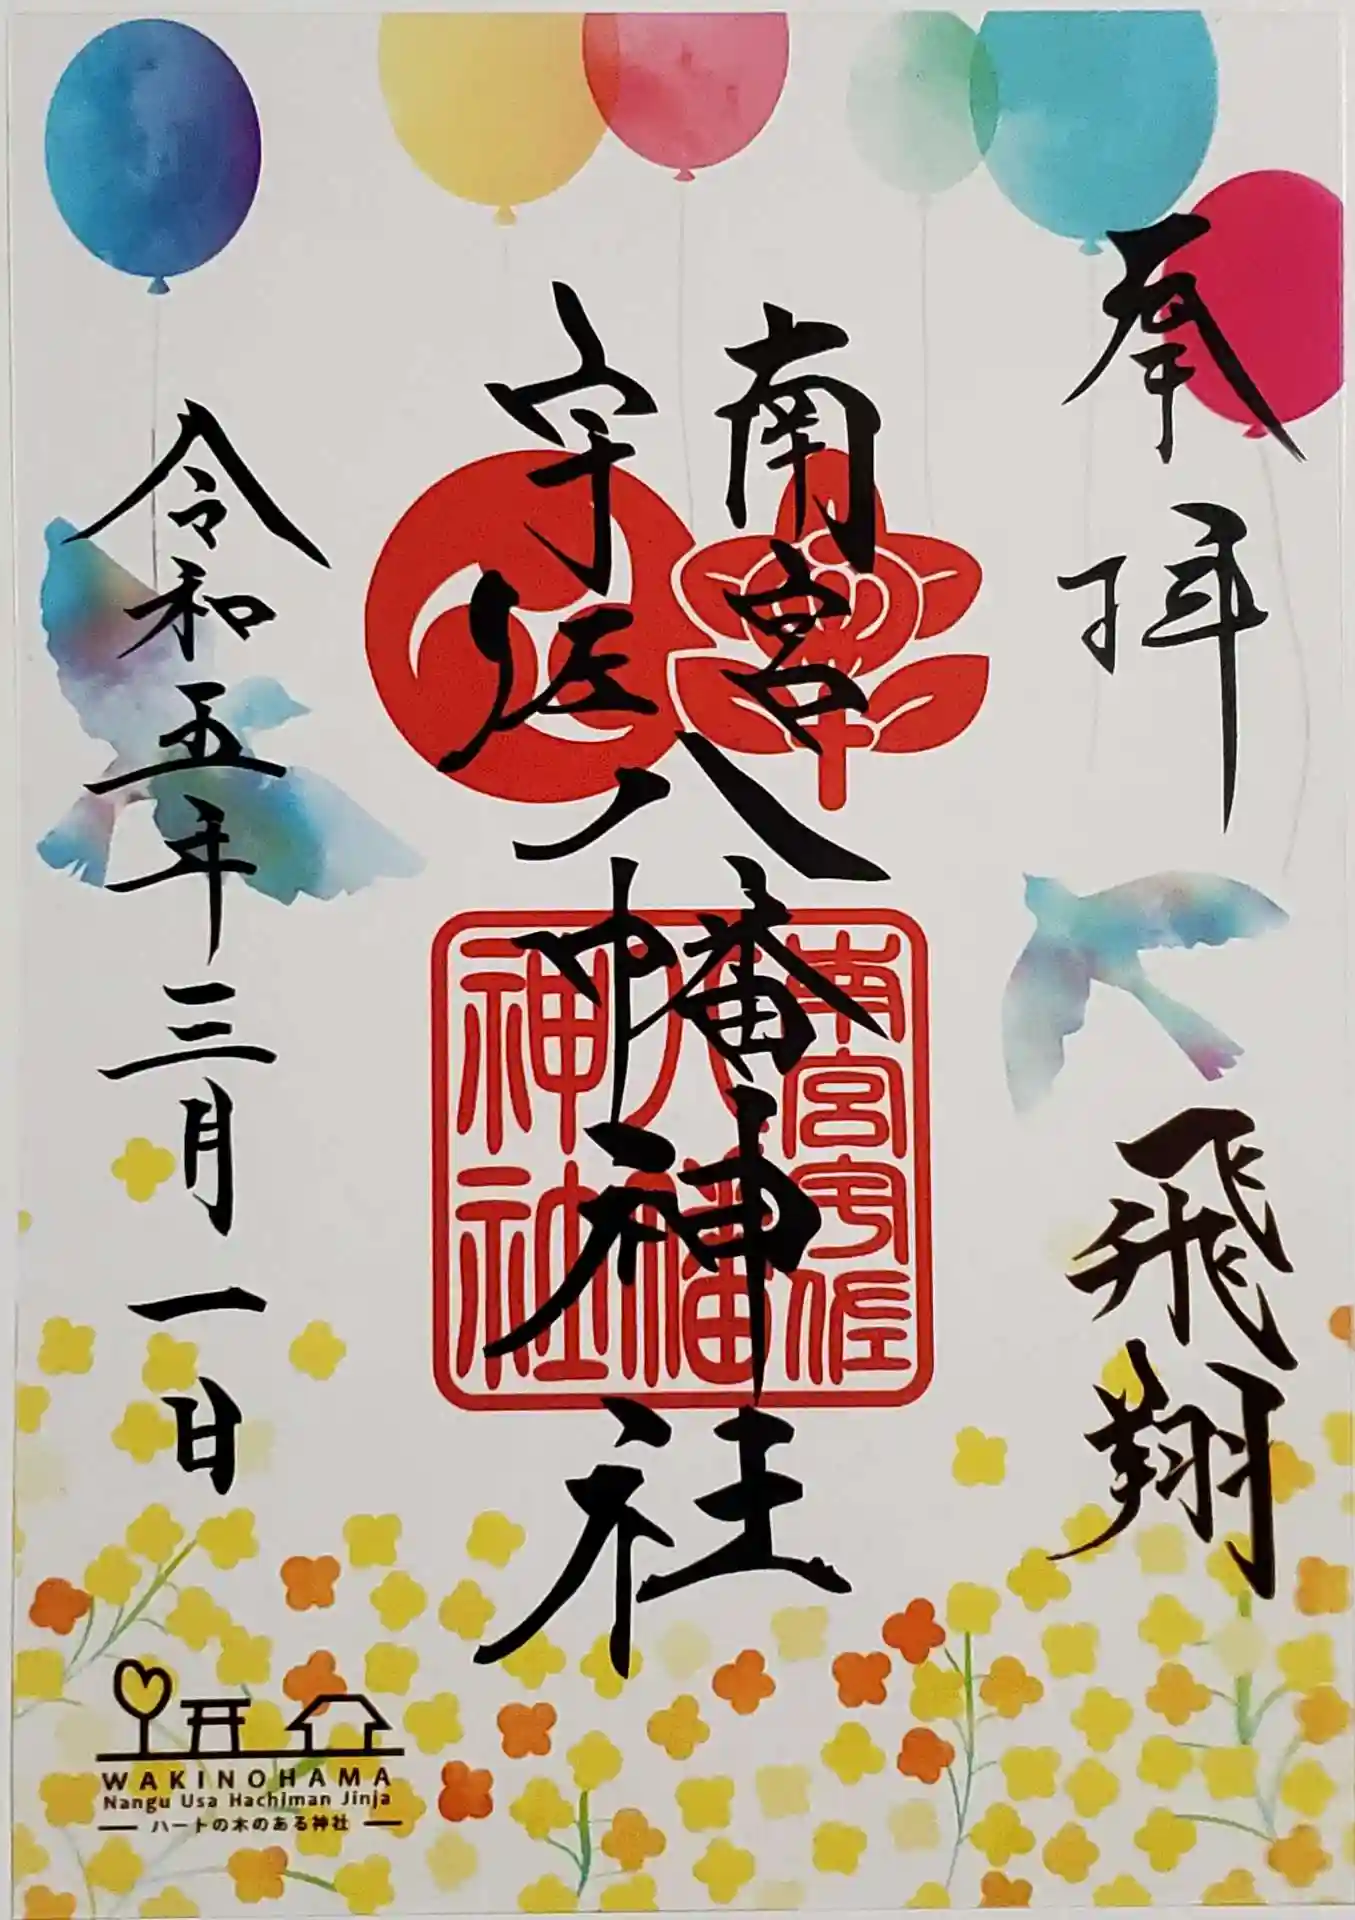 奉拝
飛翔
南宮
宇佐
八幡神社
南宮宇佐
八幡
神社
令和五年三月一日
WAKINOHAMA
Nangu Usa Hachiman Jinja
ハートの木のある神社